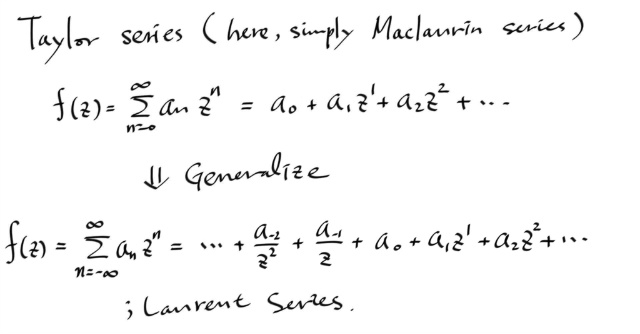 Taylor series (here, simply Maclaurin series)
f(z) = ∑_{n=0}^{∞} aₙ zⁿ = a₀ + a₁z¹ + a₂z² + ⋯
⇓ Generalize
f(z) = ∑_{n=-∞}^{∞} aₙ zⁿ = ⋯ + a₋₂/z² + a₋₁/z + a₀ + a₁z¹ + a₂z² + ⋯
; Laurent Series.